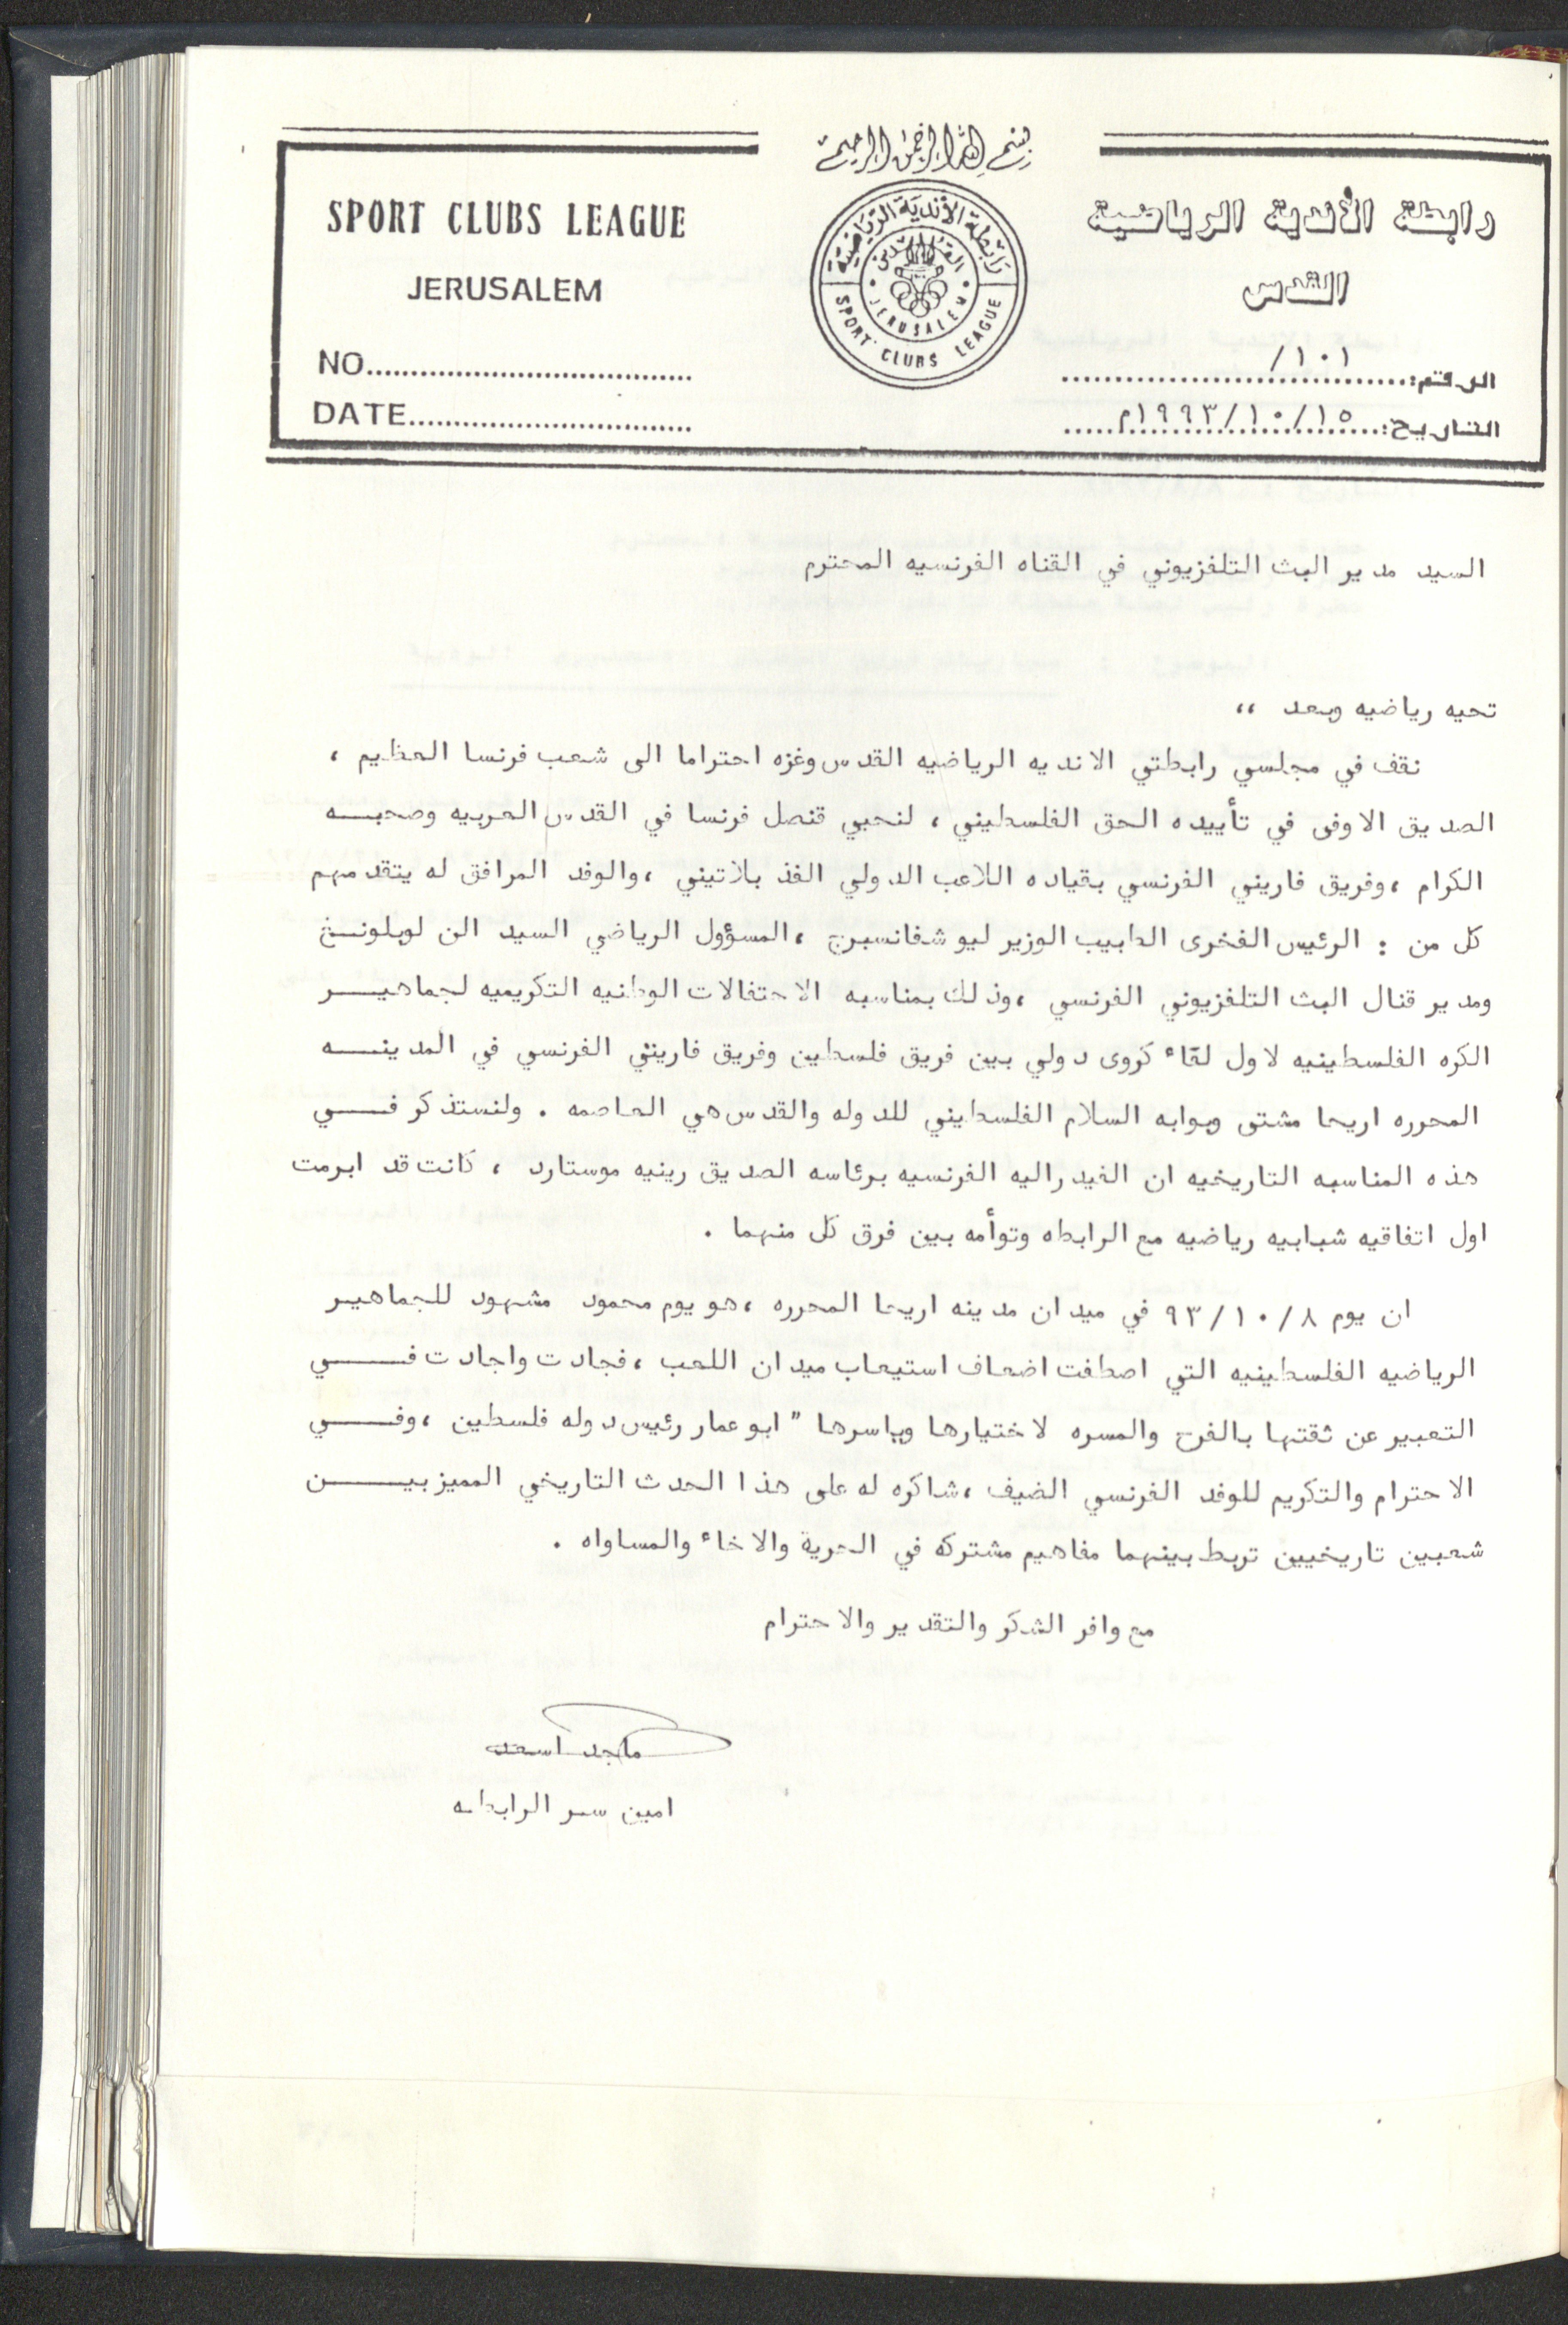 بسم الله الرحمن الرحيم
SPORT CLUBS LEAGUE
JERUSALEM
NO
DATE
رابطة الأندية الرياضية
القدس
JERUSALEM
SPORT CLUBS LEAGUE
رابطة الأندية الرياضية
القدس
الرقم: ١٠١/
التاريخ: ١٩٩٣/١٠/١٥م
السيد مدير البث التلفزيوني في القناه الفرنسيه المحترم
تحيه رياضيه وبعد ،،
نقف في مجلسي رابطتي الانديه الرياضيه القدس وغزه احتراما الى شعب فرنسا العظيم ،
الصديق الاوفى في تأييده الحق الفلسطيني ، لنحيي قنصل فرنسا في القدس العربيه وصحبــه
الكرام ، وفريق فاريني الفرنسي بقياده اللاعب الدولي الفذ بلاتيني ، والوفد المرافق له يتقدمهم
كل من : الرئيس الفخرى الطبيب الوزير ليو شفانسبرج ، المسؤول الرياضي السيد الن لوبلونــخ
ومدير قنال البث التلفزيوني الفرنسي ، وذلك بمناسبه الاحتفالات الوطنيه التكريميه لجماهيــر
الكره الفلسطينيه لاول لقاء كروى دولي بين فريق فلسطين وفريق فاريني الفرنسي في المدينــه
المحرره اريحا مشتى وبوابه السلام الفلسطيني للدوله والقدس هي العاصمه . ولنستذكر فــي
هذه المناسبه التاريخيه ان الفيدراليه الفرنسيه برئاسه الصديق رينيه موستارد ، كانت قد ابرمت
اول اتفاقيه شبابيه رياضيه مع الرابطه وتوأمه بين فرق كل منهما .
ان يوم ٩٣/١٠/٨ في ميدان مدينه اريحا المحرره ، هو يوم محمود مشهود للجماهيــر
الرياضيه الفلسطينيه التي اصطفت اضعاف استيعاب ميدان اللعب ، فجادت واجادت فــي
التعبير عن ثقتها بالفرح والمسره لاختيارها وياسرها " ابو عمار رئيس دوله فلسطين ، وفــي
الاحترام والتكريم للوفد الفرنسي الضيف ، شاكره له على هذا الحدث التاريخي المميز بيــن
شعبين تاريخيين تربط بينهما مفاهيم مشتركه في الحرية والاخاء والمساواه .
مع وافر الشكر والتقدير والاحترام
ماجد اسعد
امين سر الرابطه